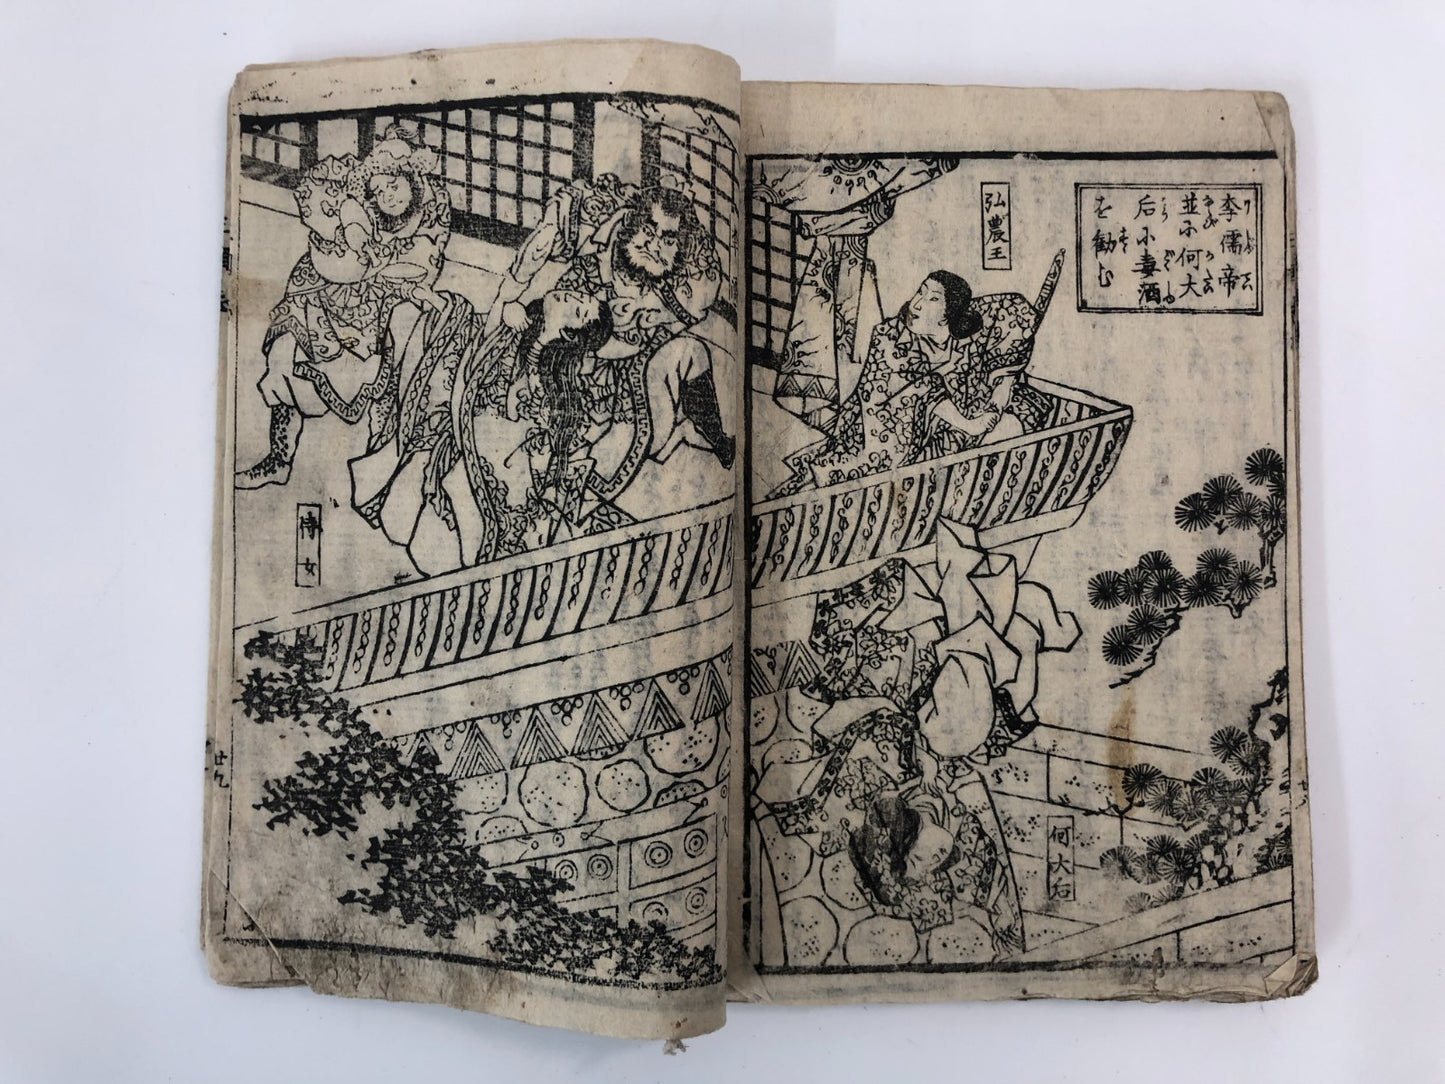 李儒帝
並に何大
后に毒酒
を勧む
弘農王
何大后
侍女
廿九